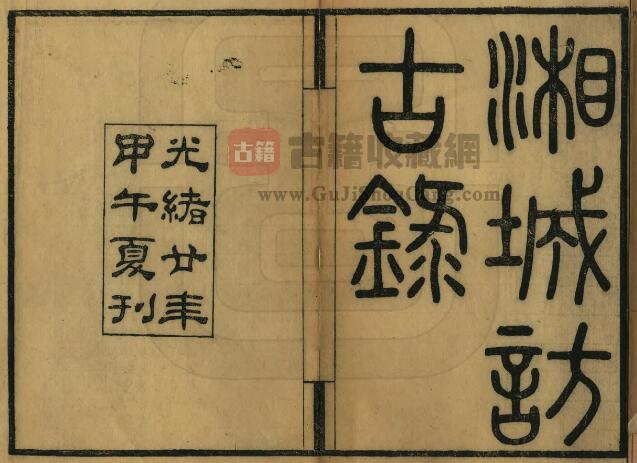 湘城訪
古錄
光緒廿年
甲午夏刊
古籍
古籍收藏網
www.GuJiShouCang.com